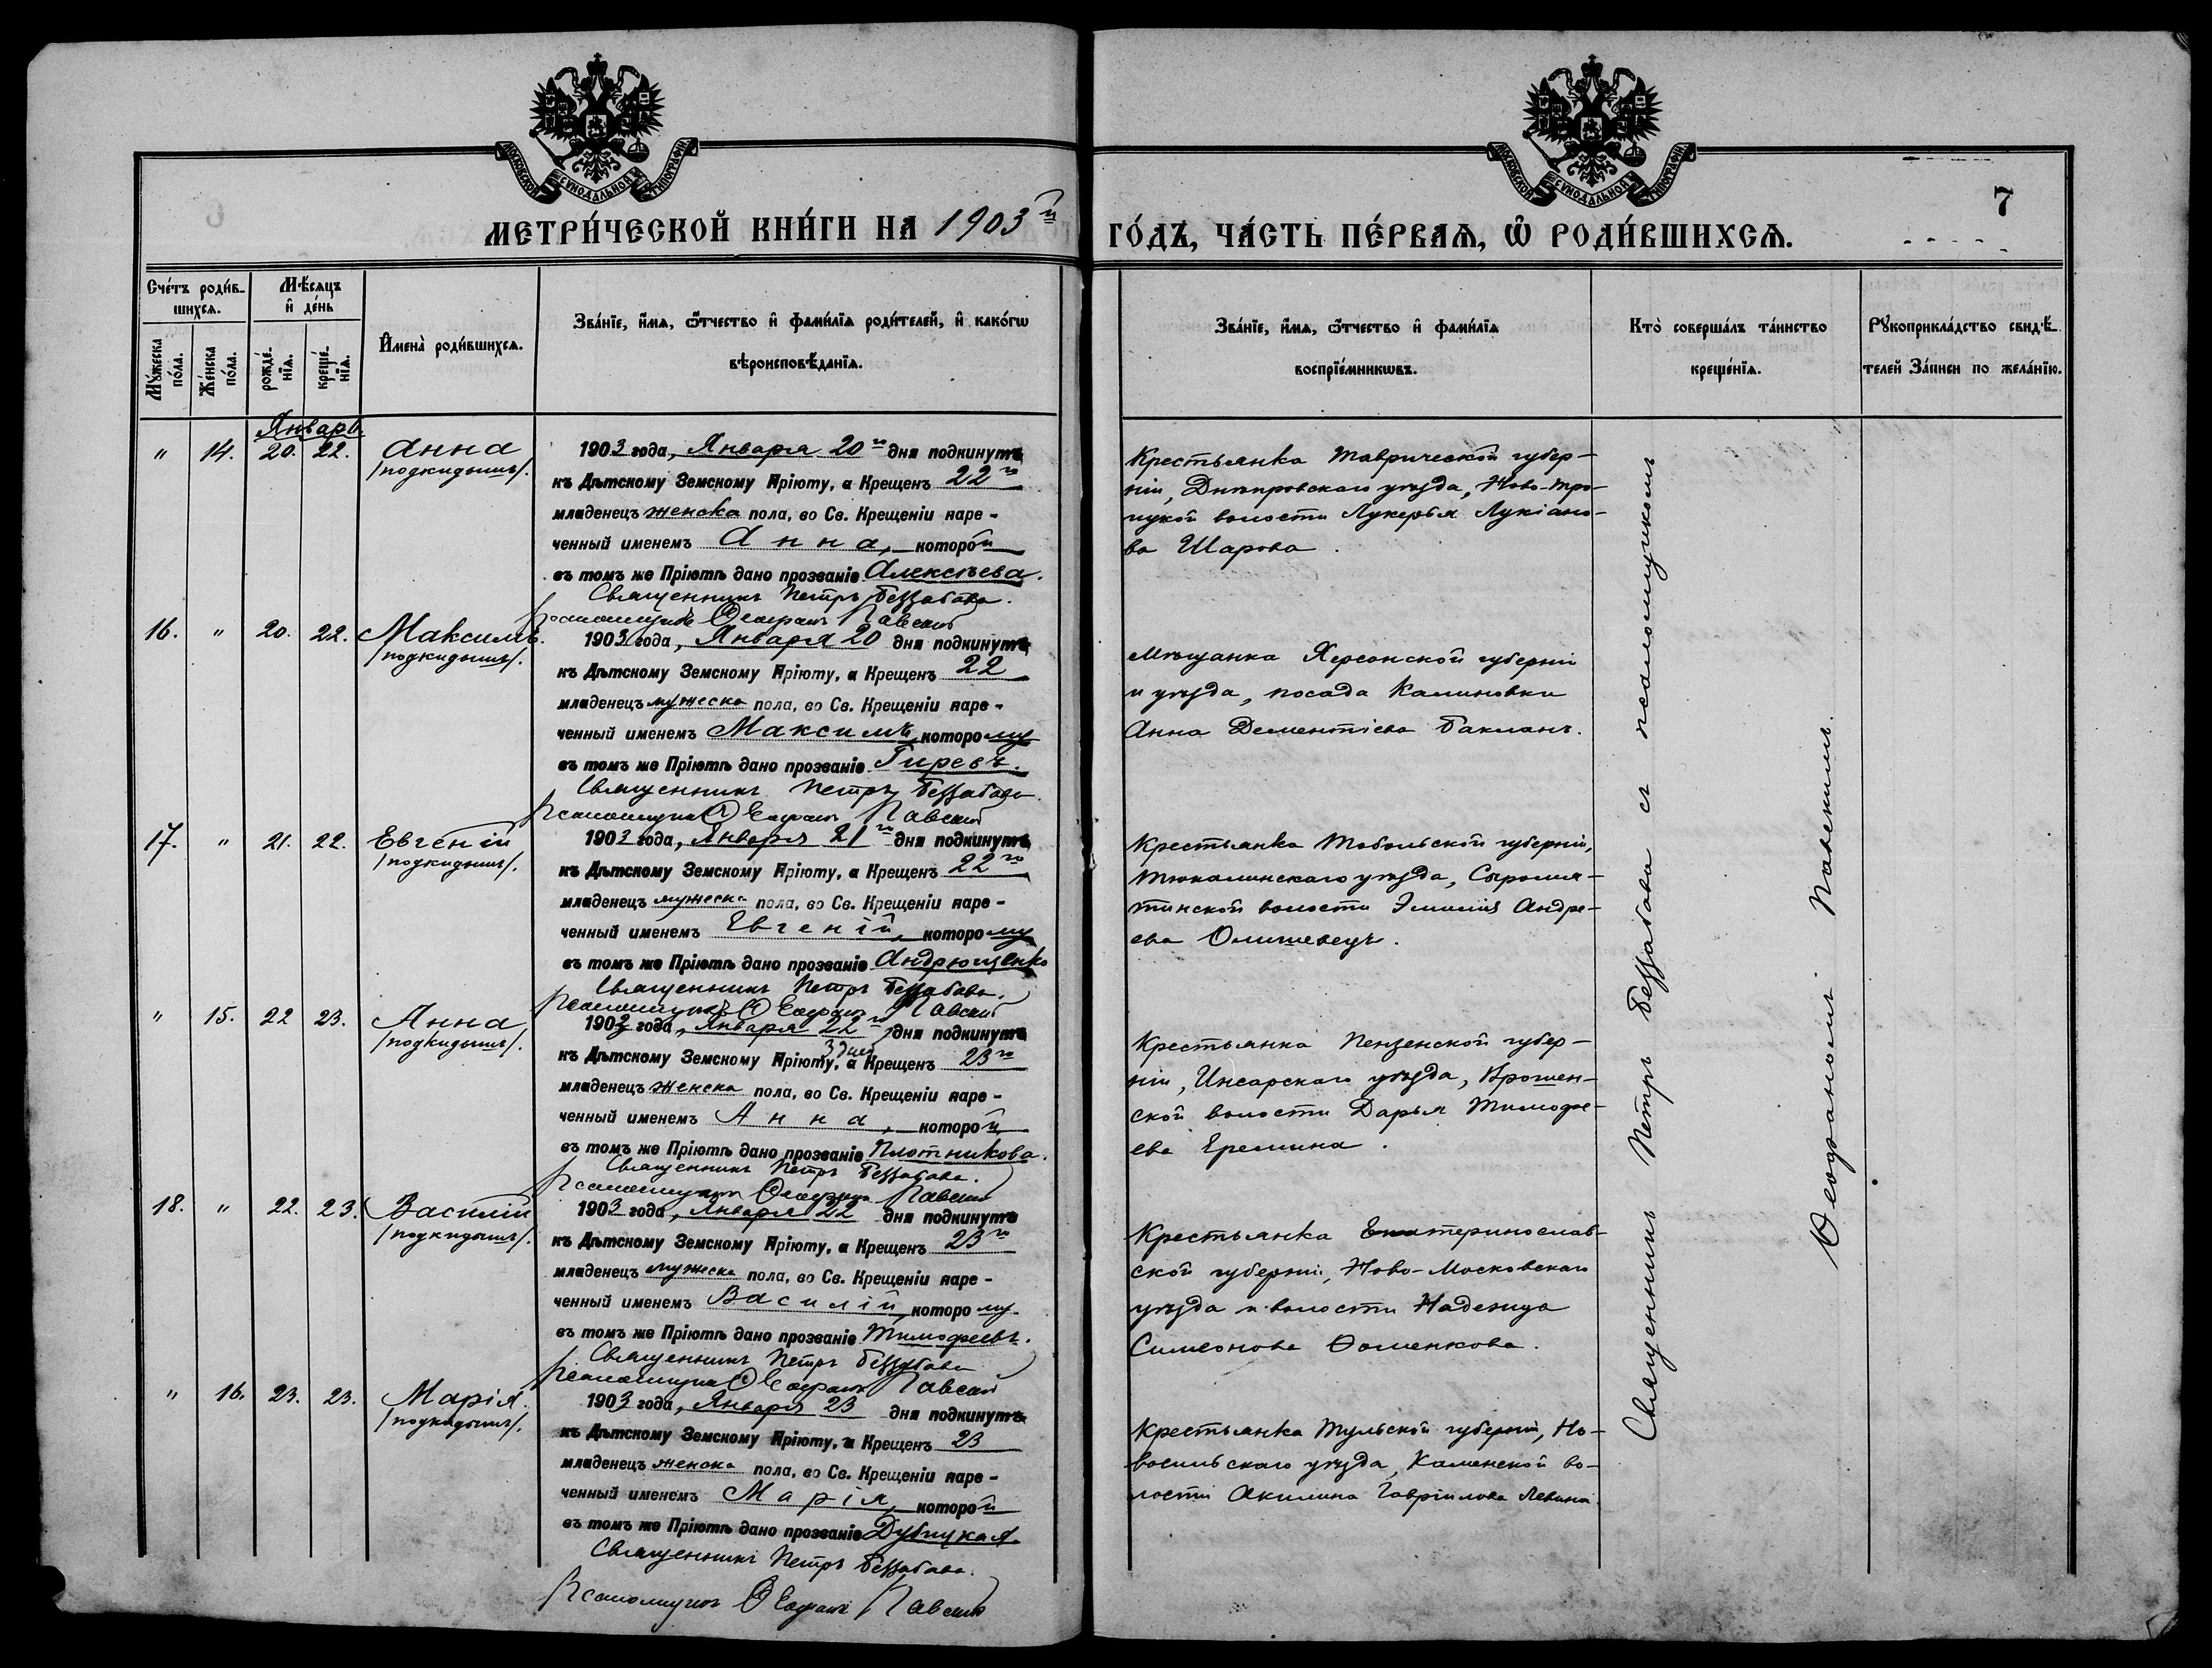 МОСКОВСКОЙ СѴНОДАЛЬНОЙ ТИПОГРАФІИ
МОСКОВСКОЙ СѴНОДАЛЬНОЙ ТИПОГРАФІИ
7
МЕТРИ́ЧЕСКОЙ КНИ́ГИ НА 1903й
ГО́ДЪ, ЧА́СТЬ ПЕ́РВАѦ, Ѽ РОДИ́ВШИХСѦ.
Сче́тъ роди́в-
шихсѧ.
Мѣ́сѧцъ
и҆ де́нь
Мꙋ́жеска
по́ла.
Же́нска
по́ла.
рожде́-
нїѧ.
креще́-
нїѧ.
И҆мена̀ роди́вшихсѧ.
Зва́нїе, и҆́мѧ, ѻ҆́тчество и҆ фами́лїѧ роди́телей, и҆ како́гѡ
вѣроисповѣ́данїѧ.
Зва́нїе, и҆́мѧ, ѻ҆́тчество и҆ фами́лїѧ
воспрїе́мникѡвъ.
Кто̀ соверша́лъ та́инство
креще́нїѧ.
Рꙋкоприкла́дство свидѣ́-
телей за́писи по жела́нїю.
Январь
" 14. 20. 22. Анна
/подкидышъ/.
1903 года, Января 20го дня подкинутъ
къ Дѣтскому Земскому Пріюту, а Крещенъ 22го
младенецъ женска пола, во Св. Крещеніи наре-
ченный именемъ Анна, которой
въ томъ же Пріютѣ дано прозваніе Алексѣева.
Священникъ Петръ Беззабава.
Псаломщикъ Ѳеофанъ Павскій
Крестьянка Таврической губер-
ніи, Днѣпровскаго уѣзда, Ново-Тро-
ицкой волости Лукерья Лукіано-
ва Шарова.
16. " 20. 22. Максимъ.
/подкидышъ/.
1903 года, Января 20 дня подкинутъ
къ Дѣтскому Земскому Пріюту, а Крещенъ 22
младенецъ мужеска пола, во Св. Крещеніи наре-
ченный именемъ Максимъ, которому
въ томъ же Пріютѣ дано прозваніе Гиревъ.
Священникъ Петръ Беззабава.
Псаломщикъ Ѳеофанъ Павскій
Мѣщанка Херсонской губерніи
и уѣзда, посада Калиновки
Анна Дементіева Бакланъ.
17. " 21. 22. Евгеній
/подкидышъ/.
1903 года, Января 21го дня подкинутъ
къ Дѣтскому Земскому Пріюту, а Крещенъ 22го
младенецъ мужеска пола, во Св. Крещеніи наре-
ченный именемъ Евгеній, которому
въ томъ же Пріютѣ дано прозваніе Андрющенко
Священникъ Петръ Беззабава.
Псаломщикъ Ѳеофанъ Павскій
Крестьянка Тобольской губерніи,
Тюкалинскаго уѣзда, Сыропя-
тинской волости Эмилія Андре-
ева Олишевецъ.
" 15. 22 23. Анна
/подкидышъ/.
1903 года, Января 22го дня подкинутъ
3 дней
къ Дѣтскому Земскому Пріюту, а Крещенъ 23го
младенецъ женска пола, во Св. Крещеніи наре-
ченный именемъ Анна, которой
въ томъ же Пріютѣ дано прозваніе Плотникова.
Священникъ Петръ Беззабава.
Псаломщикъ Ѳеофанъ Павскій
Крестьянка Пензенской губер-
ніи, Инсарскаго уѣзда,
ской волости Дарья Тимофе-
ева Еремина.
18. " 22. 23. Василій
/подкидышъ/.
1903 года, Января 22 дня подкинутъ
къ Дѣтскому Земскому Пріюту, а Крещенъ 23го
младенецъ мужеска пола, во Св. Крещеніи наре-
ченный именемъ Василій, которому
въ томъ же Пріютѣ дано прозваніе Тимофеевъ.
Священникъ Петръ Беззабава
Псаломщикъ Ѳеофанъ Павскій
Крестьянка Екатеринослав-
ской губерніи, Ново-Московскаго
уѣзда и волости Надежда
Симеонова Ѳоменкова.
" 16. 23. 23. Марія.
/подкидышъ/.
1903 года, Января 23 дня подкинутъ
къ Дѣтскому Земскому Пріюту, а Крещенъ 23
младенецъ женска пола, во Св. Крещеніи наре-
ченный именемъ Марія, которой
въ томъ же Пріютѣ дано прозваніе Дубицкая.
Священникъ Петръ Беззабава.
Псаломщикъ Ѳеофанъ Павскій
Крестьянка Тульской губерніи, Но-
восильскаго уѣзда, Каменской во-
лости Акилина Гавріилова Левина.
Священникъ Петръ Беззабава съ псаломщикомъ
Ѳеофаномъ Павскимъ.